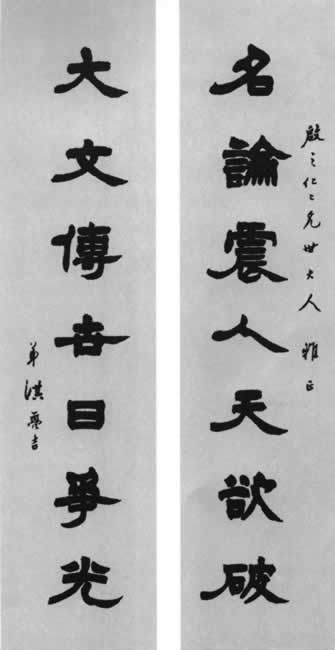 殷之仁仁兄世大人 雅正
名論震人天欲破
大文傳吉日爭光
弟洪亮吉